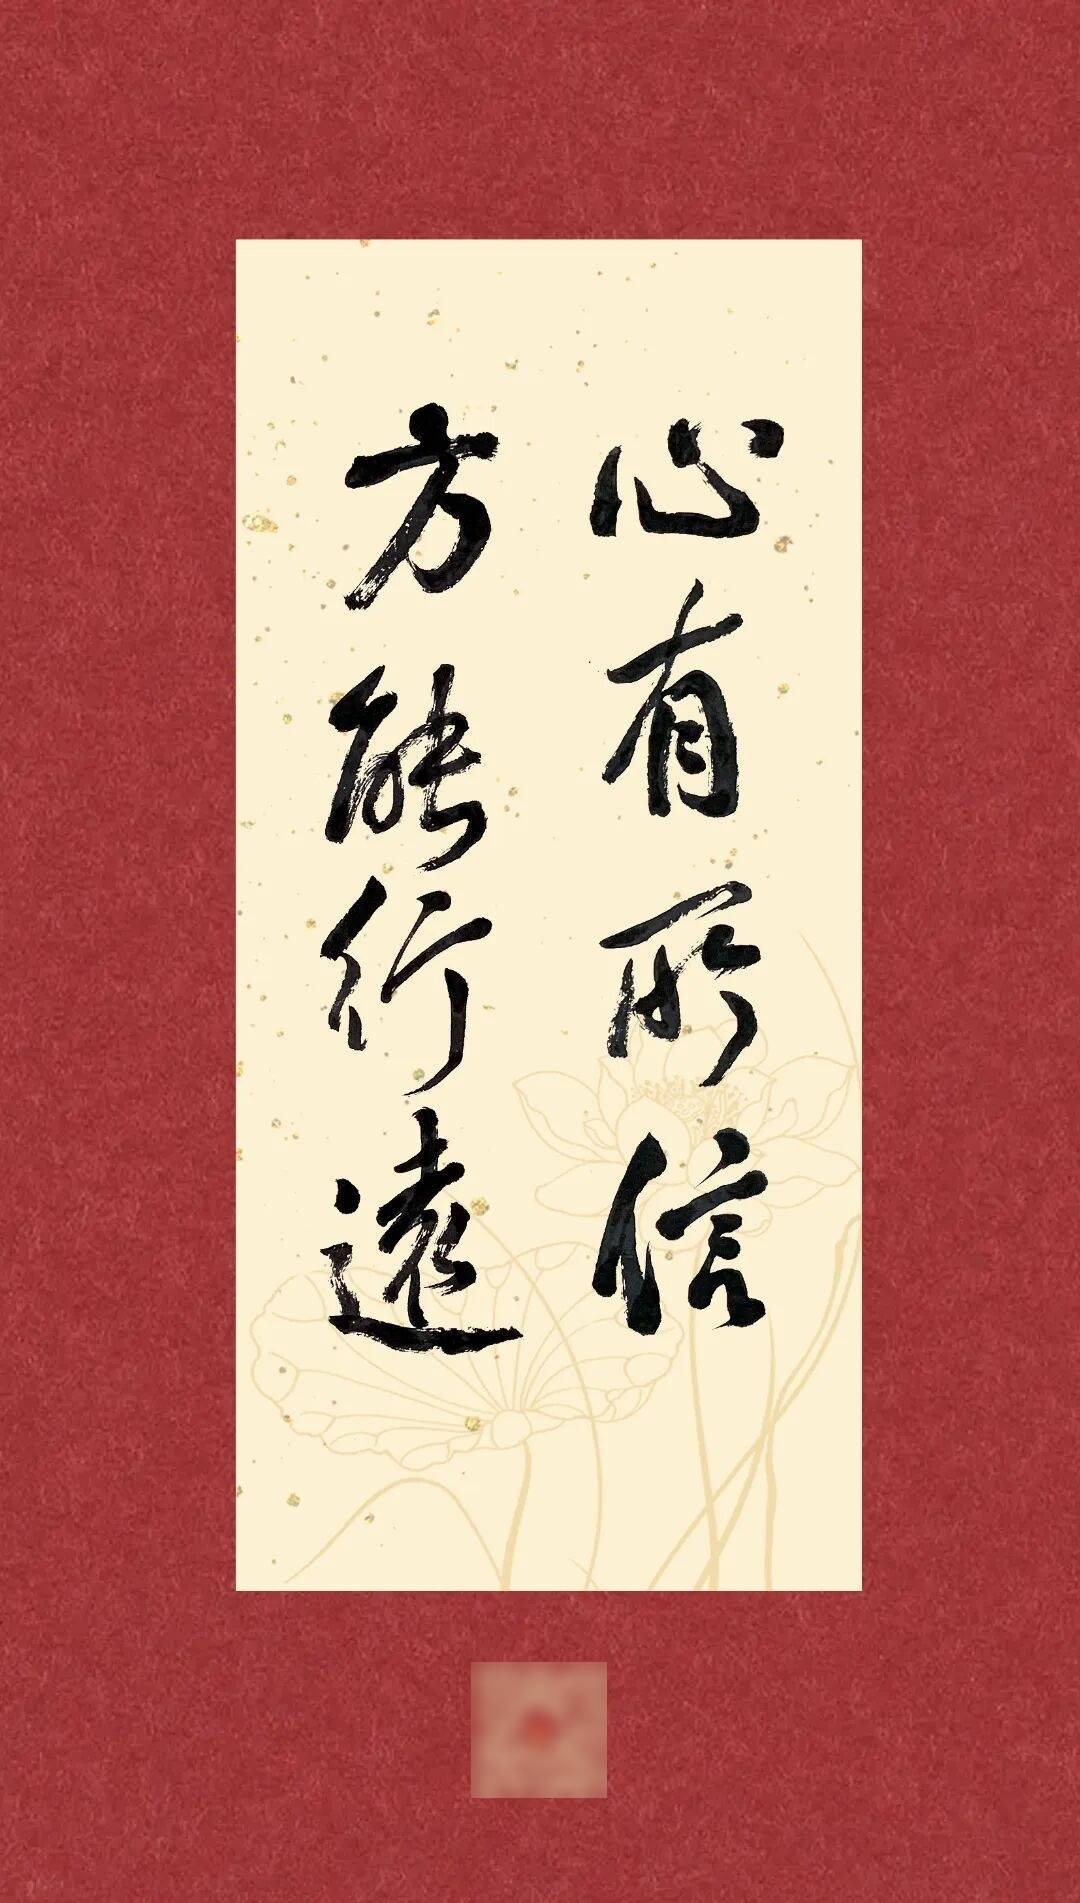 心有所信
方能行遠